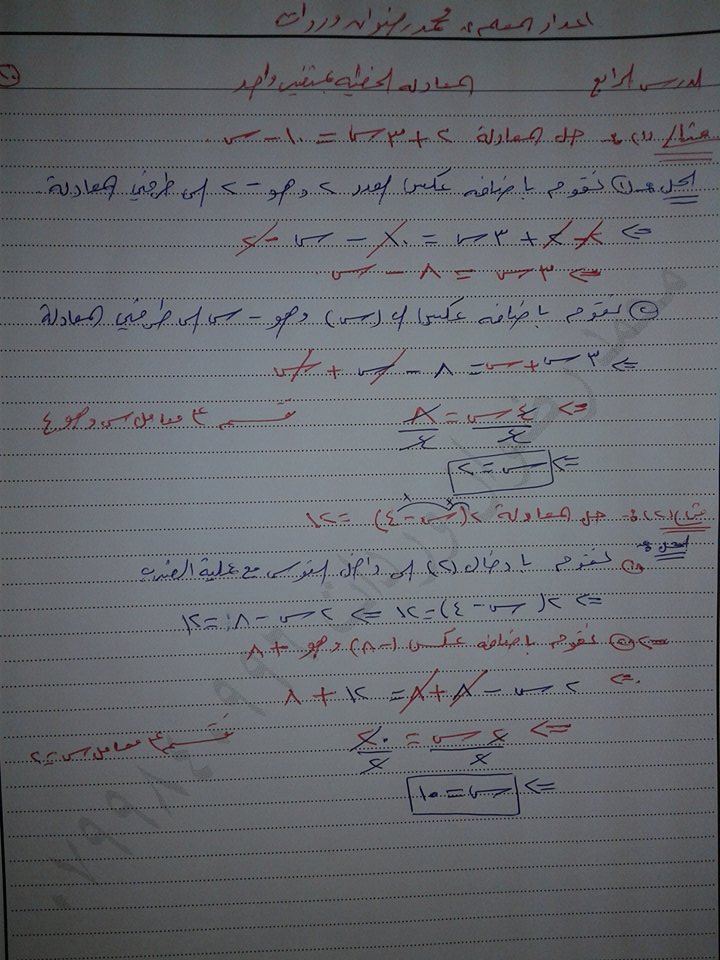 اعداد المعلم : محمد رضوان وردات
الدرس الرابع المعادلة الخطية بمتغير واحد ١٠
مثال (١) : حل المعادلة ٢ + ٣س = ١٠ - س
الحل : ① نقوم باضافة عكس العدد ٢ وهو -٢ الى طرفي المعادلة.
<= ٢ - ٢ + ٣س = ١٠ - س - ٢
<= ٣س = ٨ - س
② نقوم باضافة عكس ال (س) وهو - س الى طرفي المعادلة
<= ٣س + س = ٨ - س + س
<= ٤س/٤ = ٨/٤ نقسم ع معامل س وهو ٤
<= س = ٢
مثال (٢) : حل المعادلة ٢(س - ٤) = ١٢
الحل :
① نقوم بادخال (٢) الى داخل القوس مع عملية الضرب
<= ٢(س - ٤) = ١٢ <= ٢س - ٨ = ١٢
<= ② نقوم باضافة عكس (-٨) وهو +٨
<= ٢س - ٨ + ٨ = ١٢ + ٨
<= ٢س/٢ = ٢٠/٢ نقسم ع معامل س = ٢
<= س = ١٠